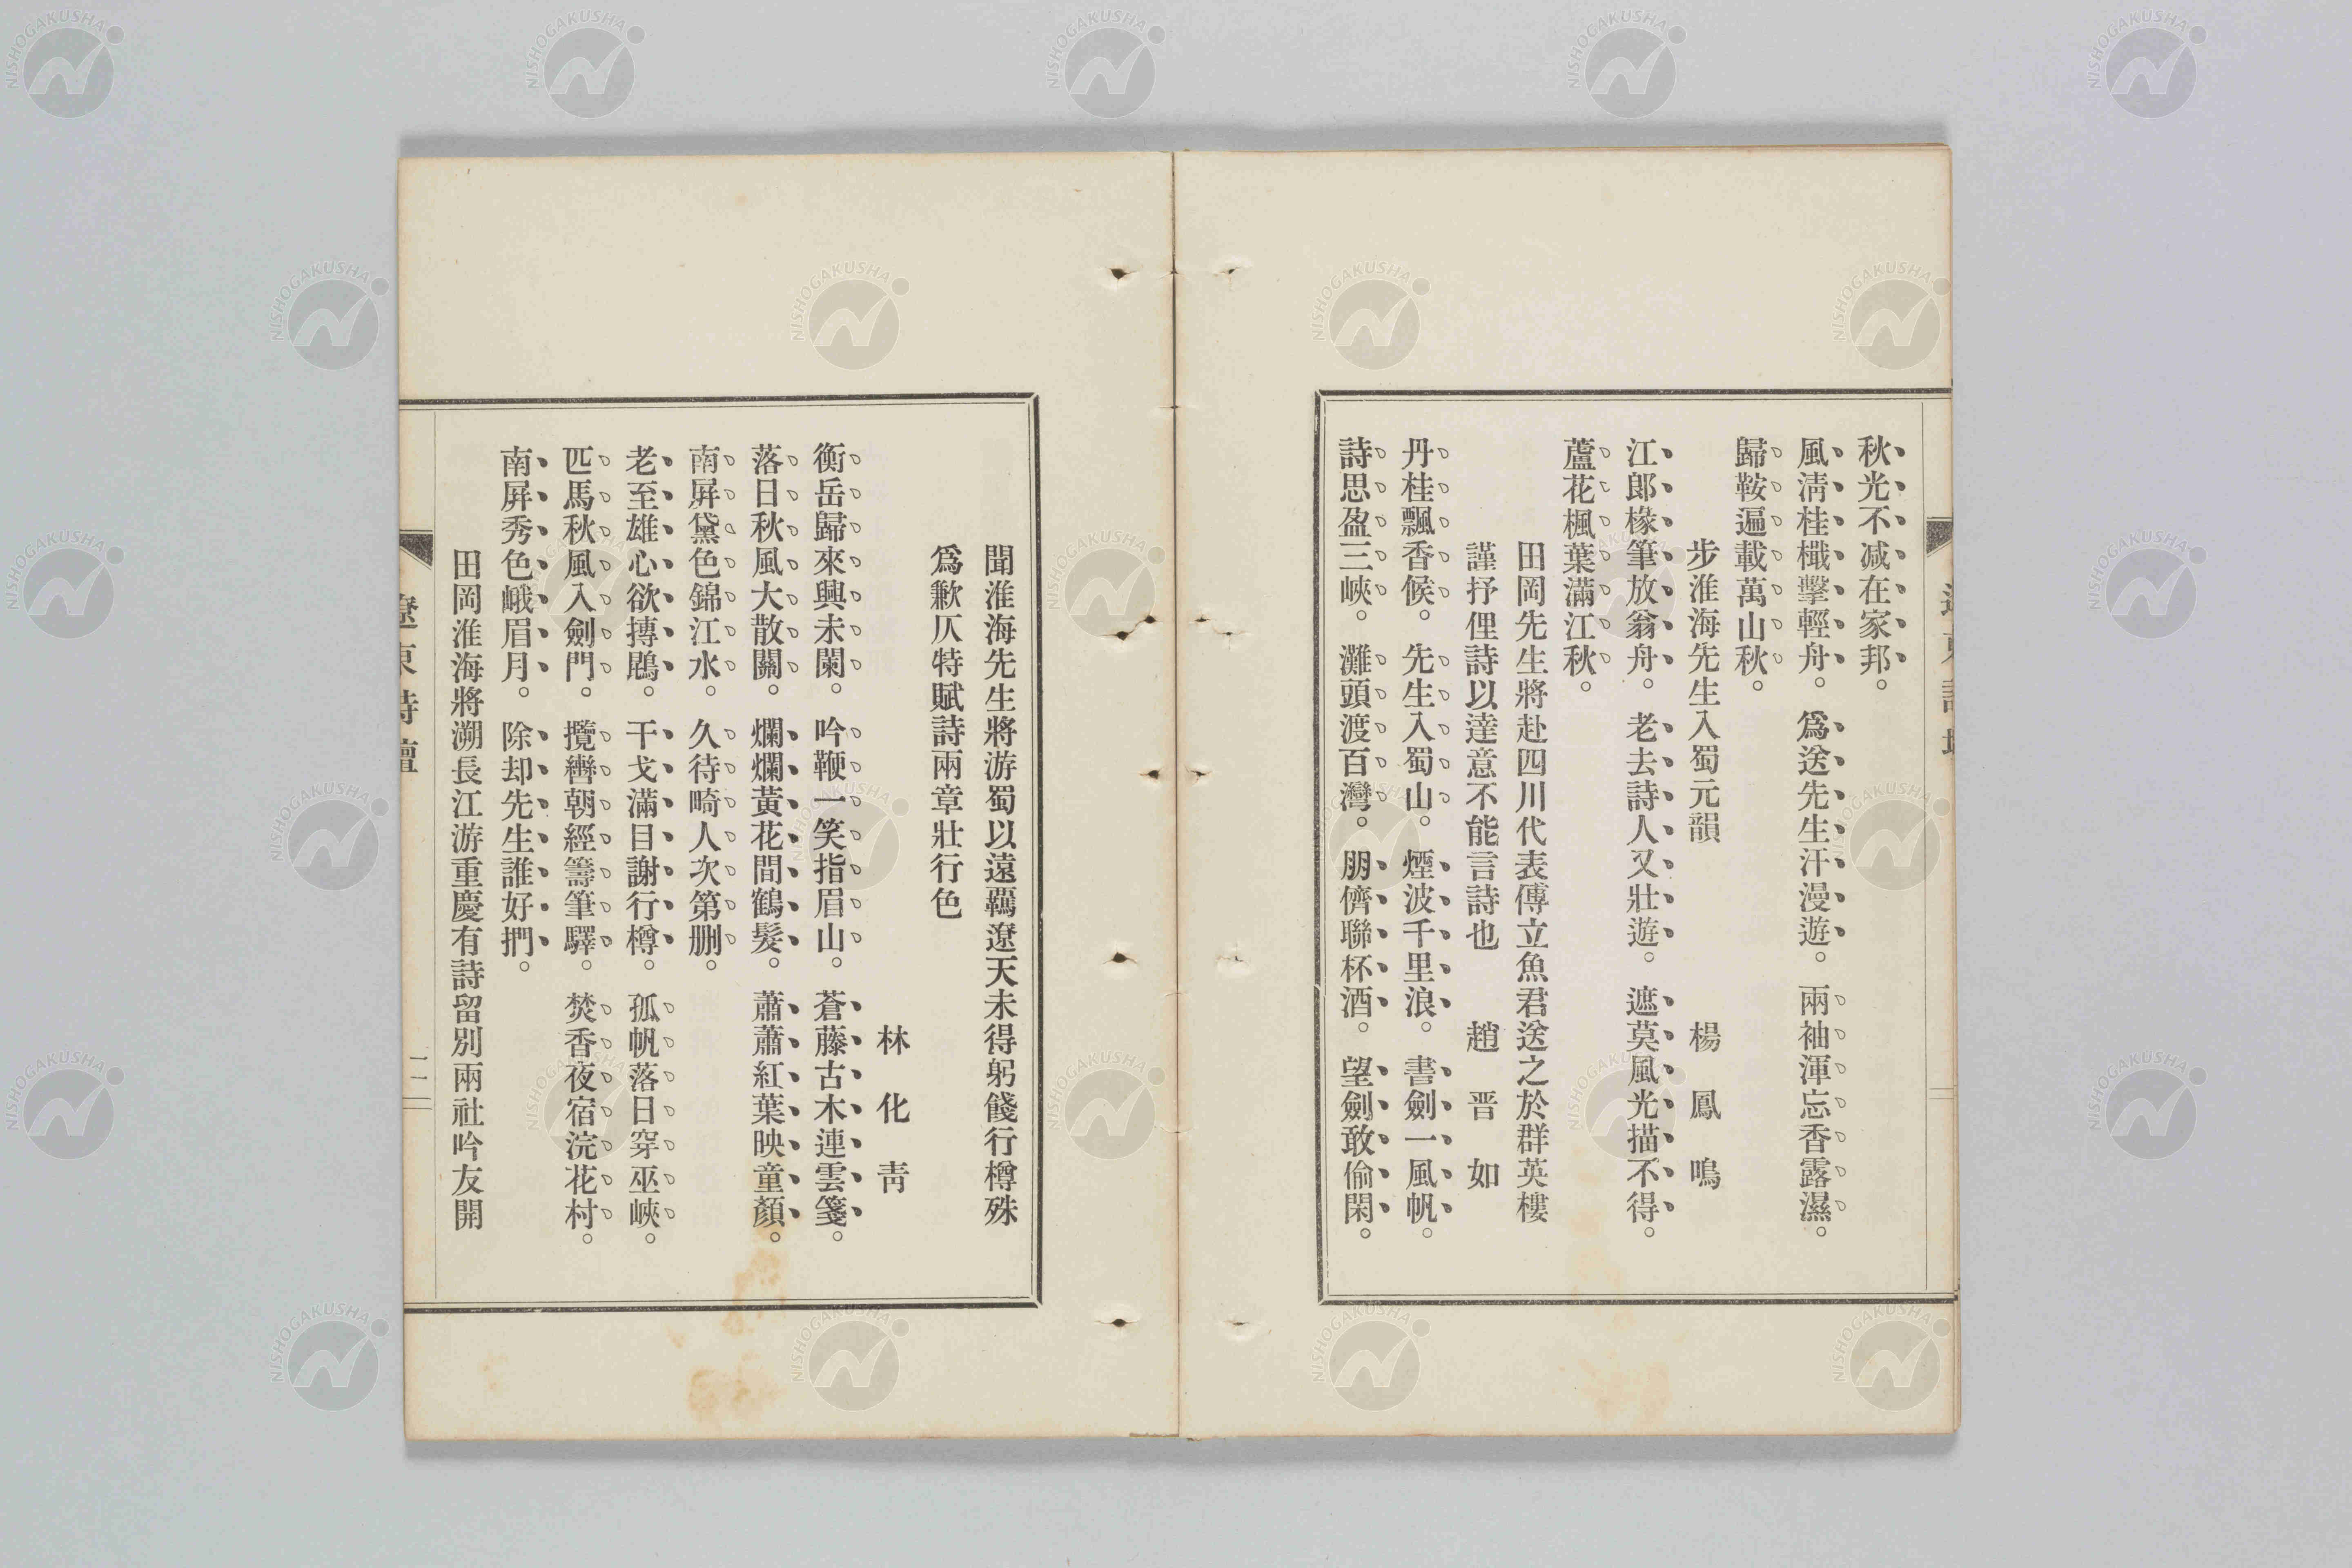 秋光不減在家邦。
風淸桂檝擊輕舟。爲送先生汗漫遊。兩袖渾忘香露濕。
歸鞍遍載萬山秋。
步淮海先生入蜀元韻　楊鳳鳴
江郞椽筆放翁舟。老去詩人又壯遊。遮莫風光描不得。
蘆花楓葉滿江秋。
田岡先生將赴四川代表傅立魚君送之於群英樓
謹抒俚詩以達意不能言詩也　趙晋如
丹桂飄香候。先生入蜀山。煙波千里浪。書劍一風帆。
詩思盈三峽。灘頭渡百灣。朋儕聯杯酒。望劍敢偷閑。
聞淮海先生將游蜀以遠羈遼天未得躬餞行樽殊
爲歉仄特賦詩兩章壯行色
林化靑
衡岳歸來興未闌。吟鞭一笑指眉山。蒼藤古木連雲箋。
落日秋風大散關。爛爛黃花間鶴髮。蕭蕭紅葉映童顏。
南屛黛色錦江水。久待畸人次第刪。
老至雄心欲摶鵾。干戈滿目謝行樽。孤帆落日穿巫峽。
匹馬秋風入劍門。攬轡朝經籌筆驛。焚香夜宿浣花村。
南屛秀色峨眉月。除却先生誰好捫。
田岡淮海將溯長江游重慶有詩留別兩社吟友開
遼東詩壇
二二
NISHOGAKUSHA